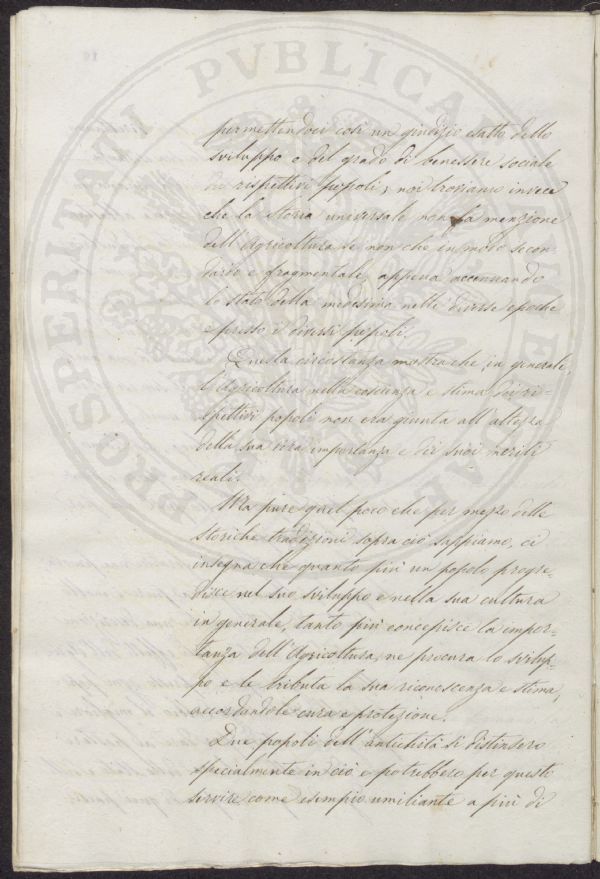 permettendoci così un giudizio esatto dello
sviluppo e del grado di benessere sociale
dei rispettivi popoli, noi troviamo invece
che la storia universale non fa menzione
dell'Agricoltura se non che in modo secon-
dario e fragmentale, appena accennando
lo stato della medesima nelle diverse epoche
e presso i diversi popoli.
Questa circostanza mostra che in generale
l'Agricoltura nella coscienza e stima dei ri-
spettivi popoli non era giunta all'altezza
della sua vera importanza e dei suoi meriti
reali.
Ma pure quel poco che per mezzo delle
storiche tradizioni sopra ciò sappiamo, ci
insegna che quanto più un popolo progre-
disce nel suo sviluppo e nella sua cultura
in generale, tanto più concepisce la impor-
tanza dell'Agricoltura, ne procura lo svilup-
po e le tributa la sua riconoscenza e stima,
accordandole cura e protezione.
Due popoli dell'antichità si distinsero
specialmente in ciò e potrebbero per questo
servire come esempio umiliante a più di
PROSPERITATI PUBLICAE